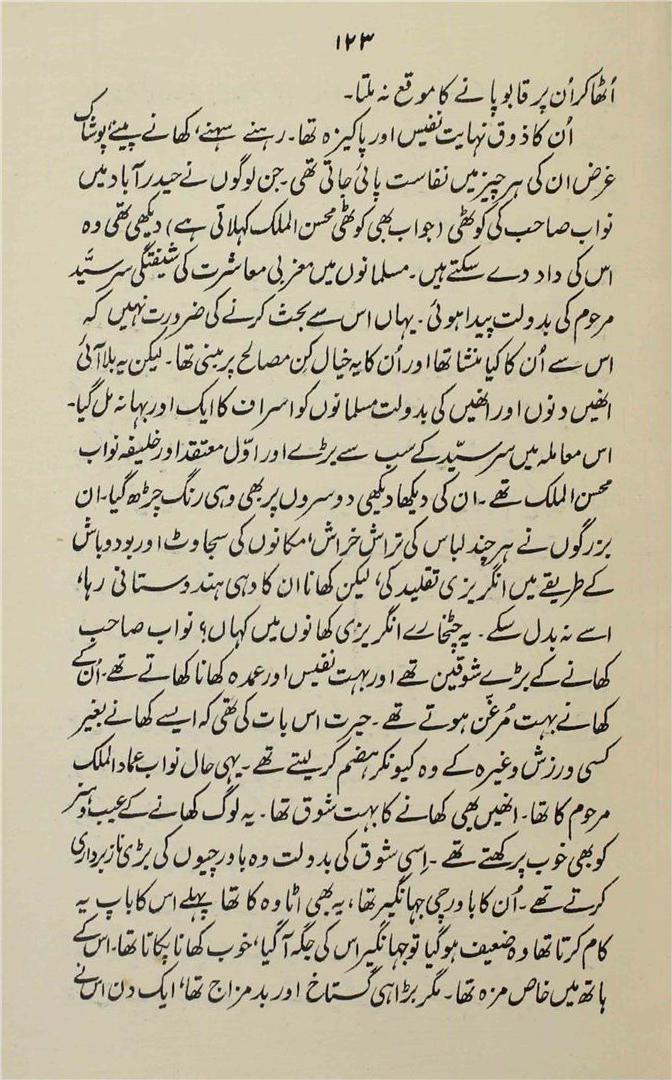 ۱۲۳
اُٹھا کر اُن پر قابو پانے کا موقع نہ ملتا۔
اُن کا ذوق نہایت نفیس اور پاکیزہ تھا۔ رہنے سہنے، کھانے پینے، پوشاک
غرض ان کی ہر چیز میں نفاست پائی جاتی تھی۔ جن لوگوں نے حیدرآباد میں
نواب صاحب کی کوٹھی (جو اب بھی کوٹھی محسن الملک کہلاتی ہے) دیکھی تھی وہ
اس کی داد دے سکتے ہیں۔ مسلمانوں میں مغربی معاشرت کی شیفتگی سرسیّد
مرحوم کی بدولت پیدا ہوئی۔ یہاں اس سے بحث کرنے کی ضرورت نہیں کہ
اس سے اُن کا کیا منشا تھا اور اُن کا یہ خیال کِن مصالح پر مبنی تھا۔ لیکن یہ بلا آئی
انھیں دنوں اور انھیں کی بدولت مسلمانوں کو اسراف کا ایک اور بہانہ مل گیا۔
اس معاملہ میں سرسیّد کے سب سے بڑے اور اوّل معتقد اور خلیفہ نواب
محسن الملک تھے۔ ان کی دیکھا دیکھی دوسروں پر بھی وہی رنگ چڑھ گیا۔ ان
بزرگوں نے ہر چند لباس کی تراش خراش، مکانوں کی سجاوٹ اور بود و باش
کے طریقے میں انگریزی تقلید کی، لیکن کھانا ان کا وہی ہندوستانی رہا،
اسے نہ بدل سکے۔ یہ چٹخارے انگریزی کھانوں میں کہاں؟ نواب صاحب
کھانے کے بڑے شوقین تھے اور بہت نفیس اور عمدہ کھانا کھاتے تھے۔ اُن کے
کھانے بہت مُرغّن ہوتے تھے۔ حیرت اس بات کی تھی کہ ایسے کھانے بغیر
کسی ورزش وغیرہ کے وہ کیونکر ہضم کر لیتے تھے۔ یہی حال نواب عماد الملک
مرحوم کا تھا۔ انھیں بھی کھانے کا بہت شوق تھا۔ یہ لوگ کھانے کے عیب و ہنر
کو بھی خوب پرکھتے تھے۔ اِسی شوق کی بدولت وہ باورچیوں کی بڑی ناز برداری
کرتے تھے۔ اُن کا باورچی جہانگیر تھا، یہ بھی اٹاوہ کا تھا پہلے اس کا باپ یہ
کام کرتا تھا وہ ضعیف ہو گیا تو جہانگیر اس کی جگہ آ گیا، خوب کھانا پکاتا تھا۔ اس کے
ہاتھ میں خاص مزہ تھا۔ مگر بڑا ہی گستاخ اور بد مزاج تھا، ایک دن اس نے